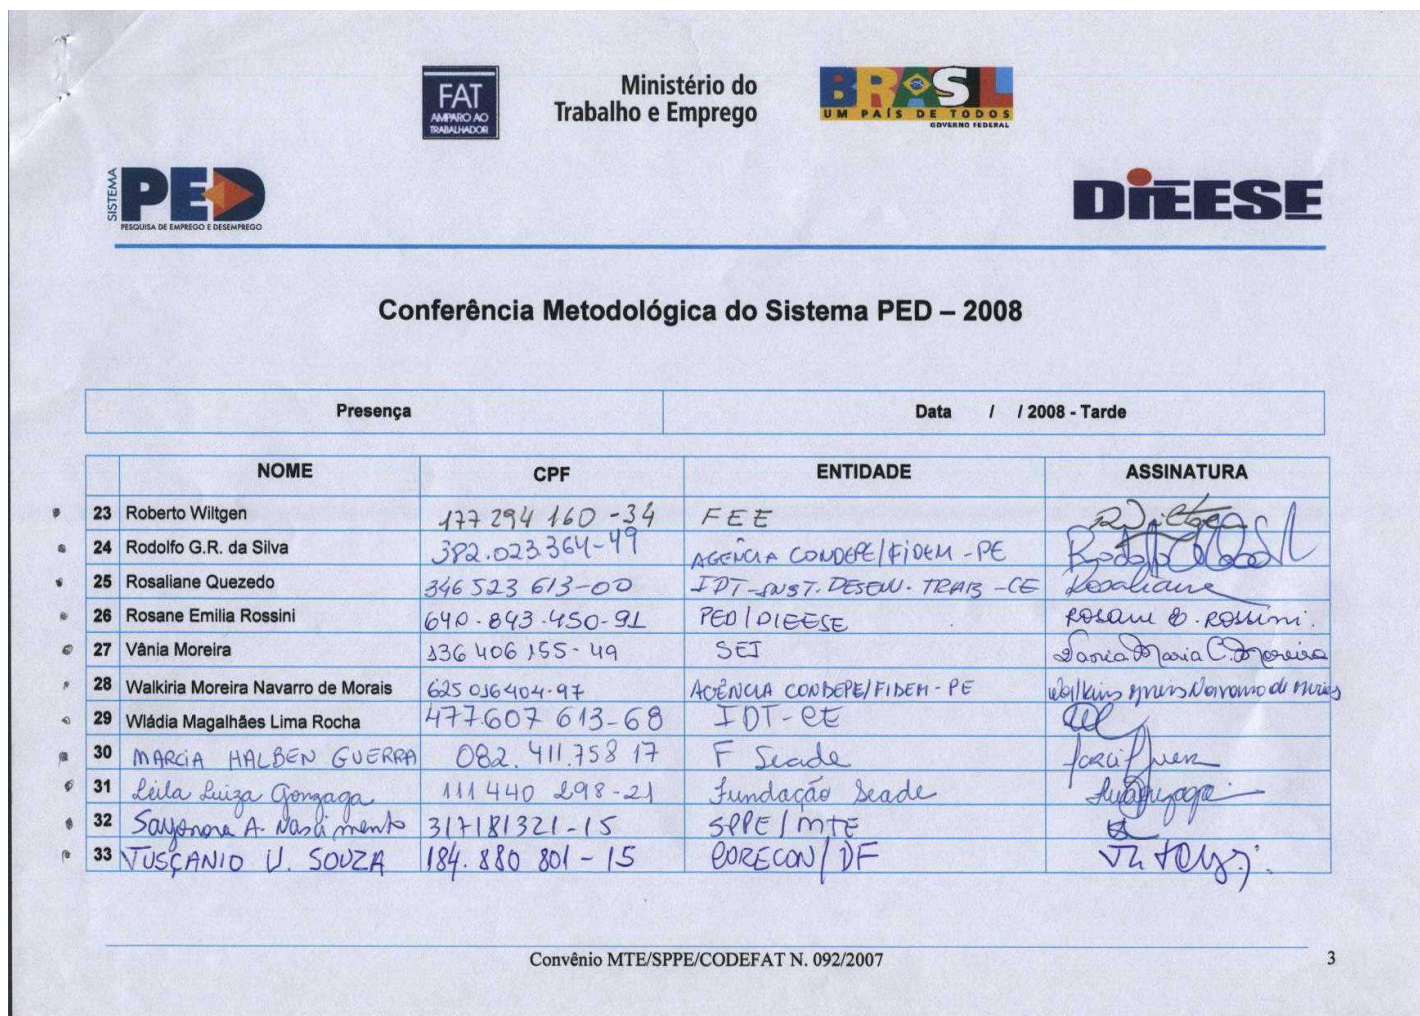 FAT
AMPARO AO
TRABALHADOR
Ministério do
Trabalho e Emprego
BRASIL
UM PAÍS DE TODOS
GOVERNO FEDERAL
SISTEMA
PED
PESQUISA DE EMPREGO E DESEMPREGO
DIEESE
Conferência Metodológica do Sistema PED – 2008
Presença Data / / 2008 - Tarde
NOME CPF ENTIDADE ASSINATURA
23 Roberto Wiltgen 177 294 160 -34 FEE
24 Rodolfo G.R. da Silva 382.023.364-49 AGENCIA CONDEPE/FIDEM - PE
25 Rosaliane Quezedo 346 523 613-00 IDT-INST. DESENV. TRAB -CE Rosaliane
26 Rosane Emilia Rossini 640.843.450-91 PED/DIEESE Rosane E. Rossini.
27 Vânia Moreira 136 406 155-49 SEI Vania Maria C. Moreira
28 Walkiria Moreira Navarro de Morais 625 036404-97 AGÊNCIA CONDEPE/FIDEM - PE
29 Wládia Magalhães Lima Rocha 477607 613-68 IDT-CE
30 MARCIA HALBEN GUERRA 082. 411.758 17 F Seade
31 Leila Luiza Gonzaga 111 440 298-21 Fundação Seade
32 Sayonara A. Nascimento 317181321-15 SPPE/MTE
33 TUSCANIO U. SOUZA 184. 880 801 - 15 CORECON/DF
Convênio MTE/SPPE/CODEFAT N. 092/2007 3